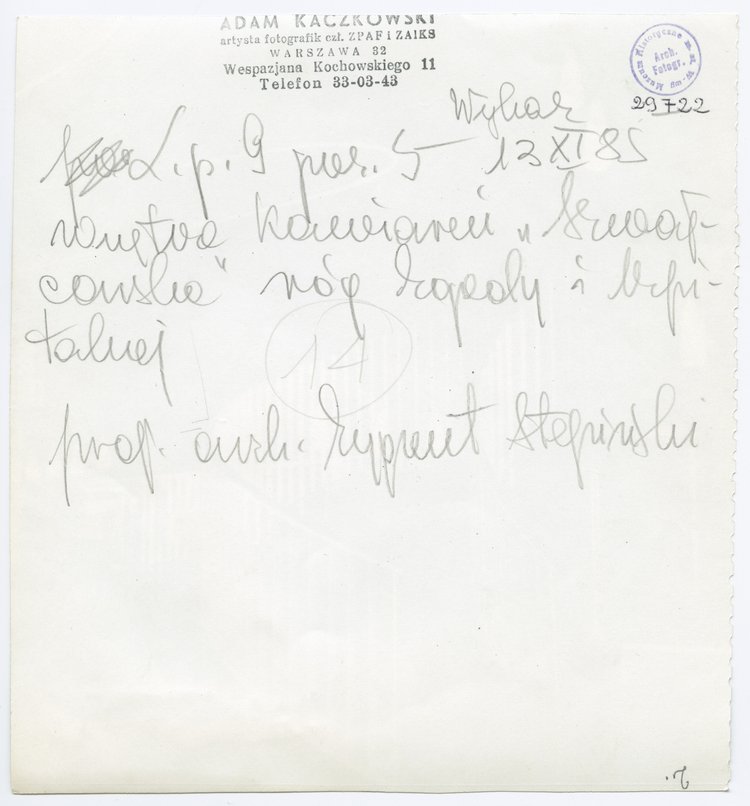 ADAM KACZKOWSKI
artysta fotografik czł. ZPAF i ZAIKS
WARSZAWA 32
Wespazjana Kochowskiego 11
Telefon 33-03-43
Muzeum Historyczne m. st. W-wy
Arch. Fotogr.
29722
Wybór
L.p. 9 poz. 5 13 XI 85
wnętrze kawiareń „Szwaj-
carska" róg Zgody i Szpi-
talnej
14
proj. arch. Zygmunt Stępiński
2.